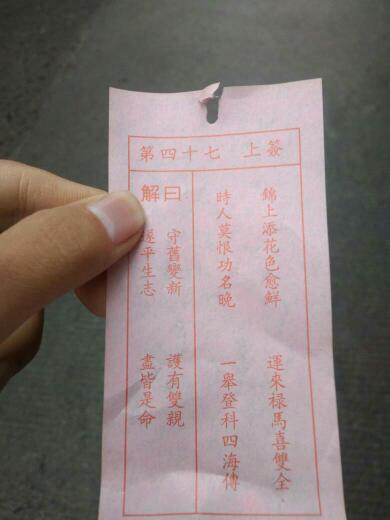 第四十七 上簽
錦上添花色愈鮮
運來禄馬喜雙全
時人莫恨功名晚
一舉登科四海傳
解曰
守舊變新
護有雙親
遂平生志
盡皆是命